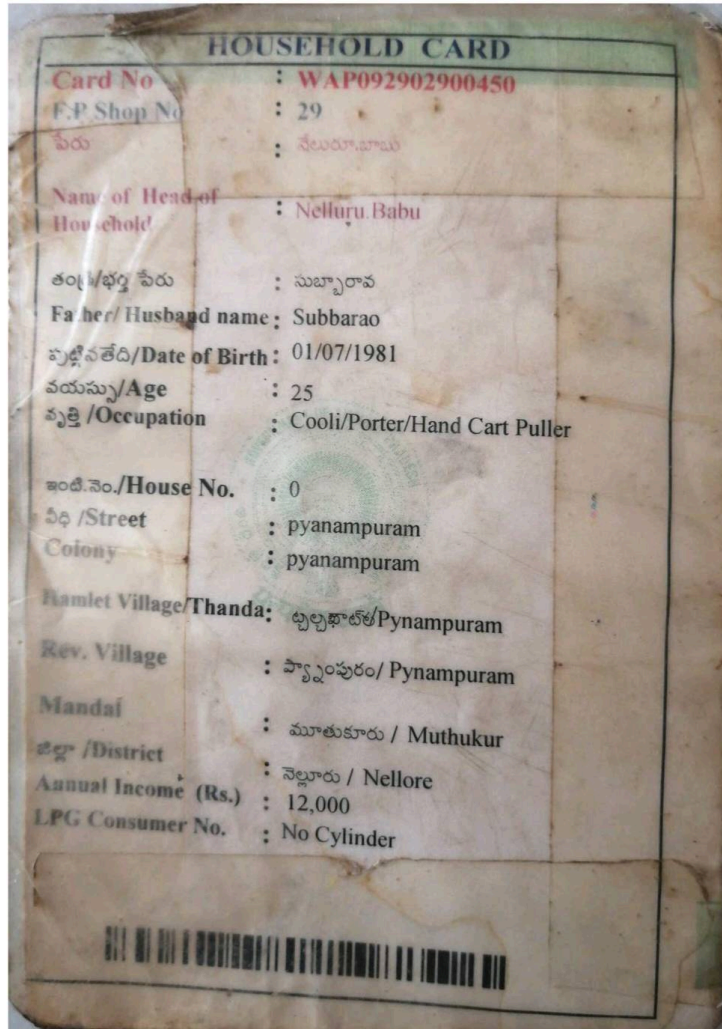 HOUSEHOLD CARD
Card No : WAP092902900450
F.P Shop No : 29
పేరు : నేలురూ.బాబు
Name of Head of Household : Nelluru.Babu
తండ్రి/భర్త పేరు : సుబ్బారావ
Father/ Husband name : Subbarao
పుట్టినతేది/Date of Birth : 01/07/1981
వయస్సు/Age : 25
వృత్తి /Occupation : Cooli/Porter/Hand Cart Puller
ఇంటి.నెం./House No. : 0
వీధి /Street : pyanampuram
Colony : pyanampuram
Hamlet Village/Thanda: /Pynampuram
Rev. Village : ప్యాంపురం/ Pynampuram
Mandal : మూతుకూరు / Muthukur
జిల్లా /District : నెల్లూరు / Nellore
Annual Income (Rs.) : 12,000
LPG Consumer No. : No Cylinder